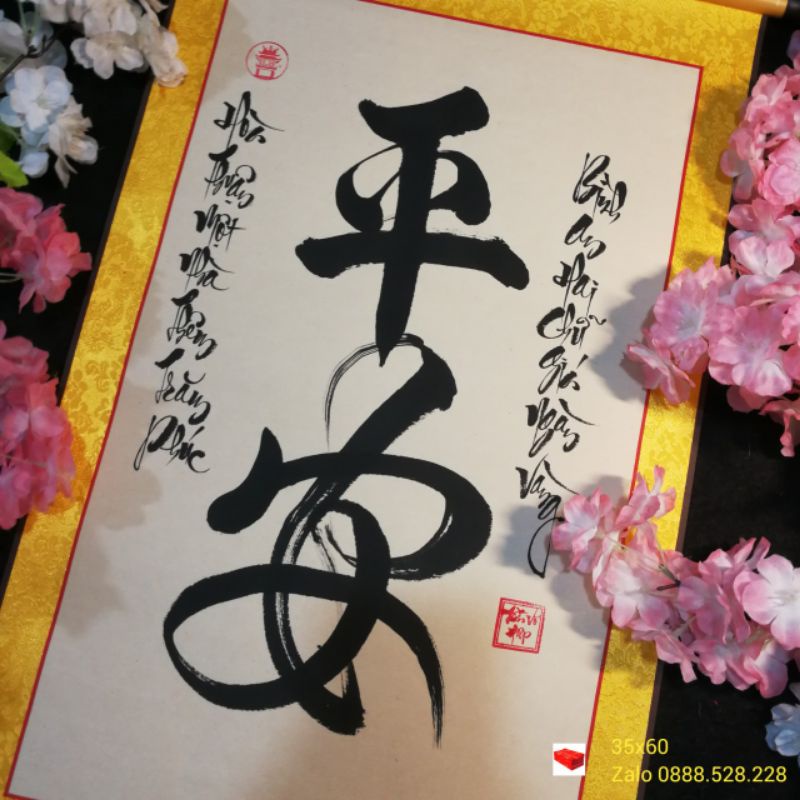 平安
Bình An Hai Chữ Giá Ngàn Vàng
Hòa Thuận Một Nhà Thêm Trăm Phúc
35x60
Zalo 0888.528.228